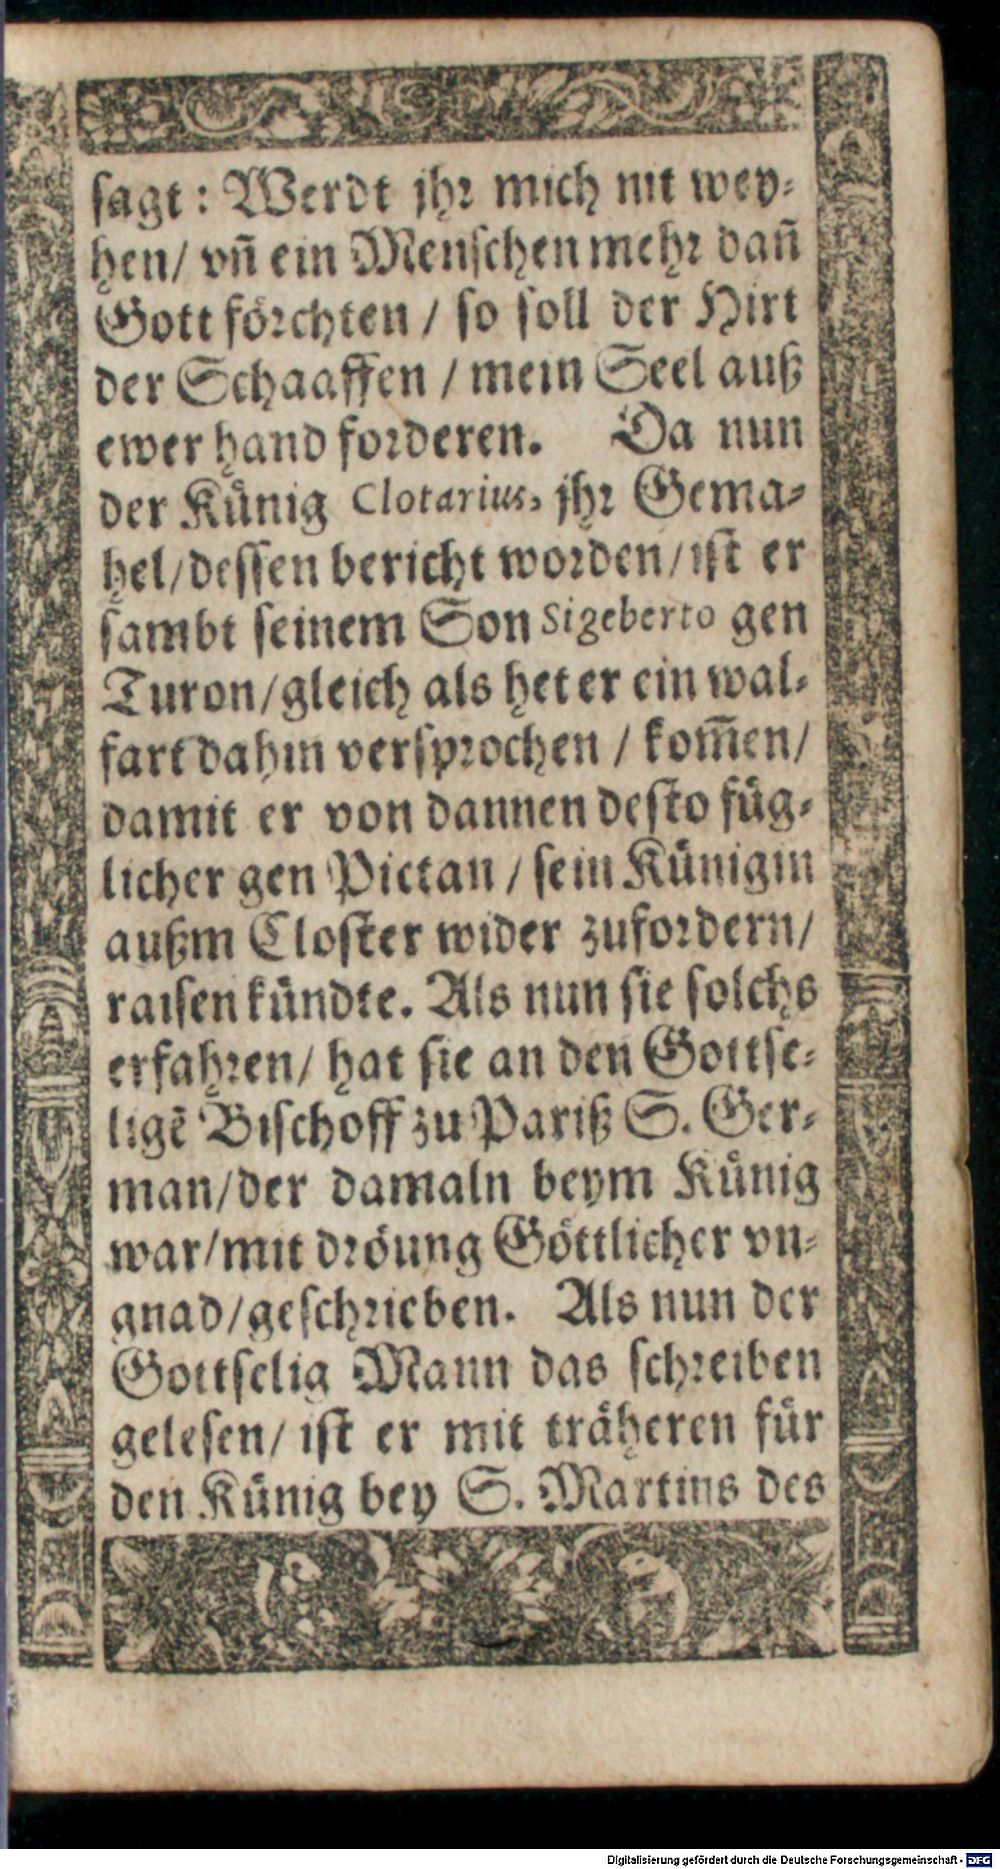 sagt: Werdt jhr mich nit wey-
hen/ vñ ein Menschen mehr dañ
Gott förchten / so soll der Hirt
der Schaaffen / mein Seel auß
ewer hand forderen. Da nun
der Künig Clotarius, jhr Gema-
hel/dessen bericht worden/ist er
sambt seinem Son Sigeberto gen
Turon/gleich als het er ein wal-
fart dahin versprochen / kom̃en/
damit er von dannen desto füg-
licher gen Pictan / sein Künigin
außm Closter wider zufordern/
raisen kündte. Als nun sie solchs
erfahren/ hat sie an den Gottse-
ligē Bischoff zu Pariß S. Ger-
man/der damaln beym Künig
war/mit dröung Göttlicher vn-
gnad/geschrieben. Als nun der
Gottselig Mann das schreiben
gelesen/ ist er mit träheren für
den Künig bey S. Martins des
Digitalisierung gefördert durch die Deutsche Forschungsgemeinschaft - DFG